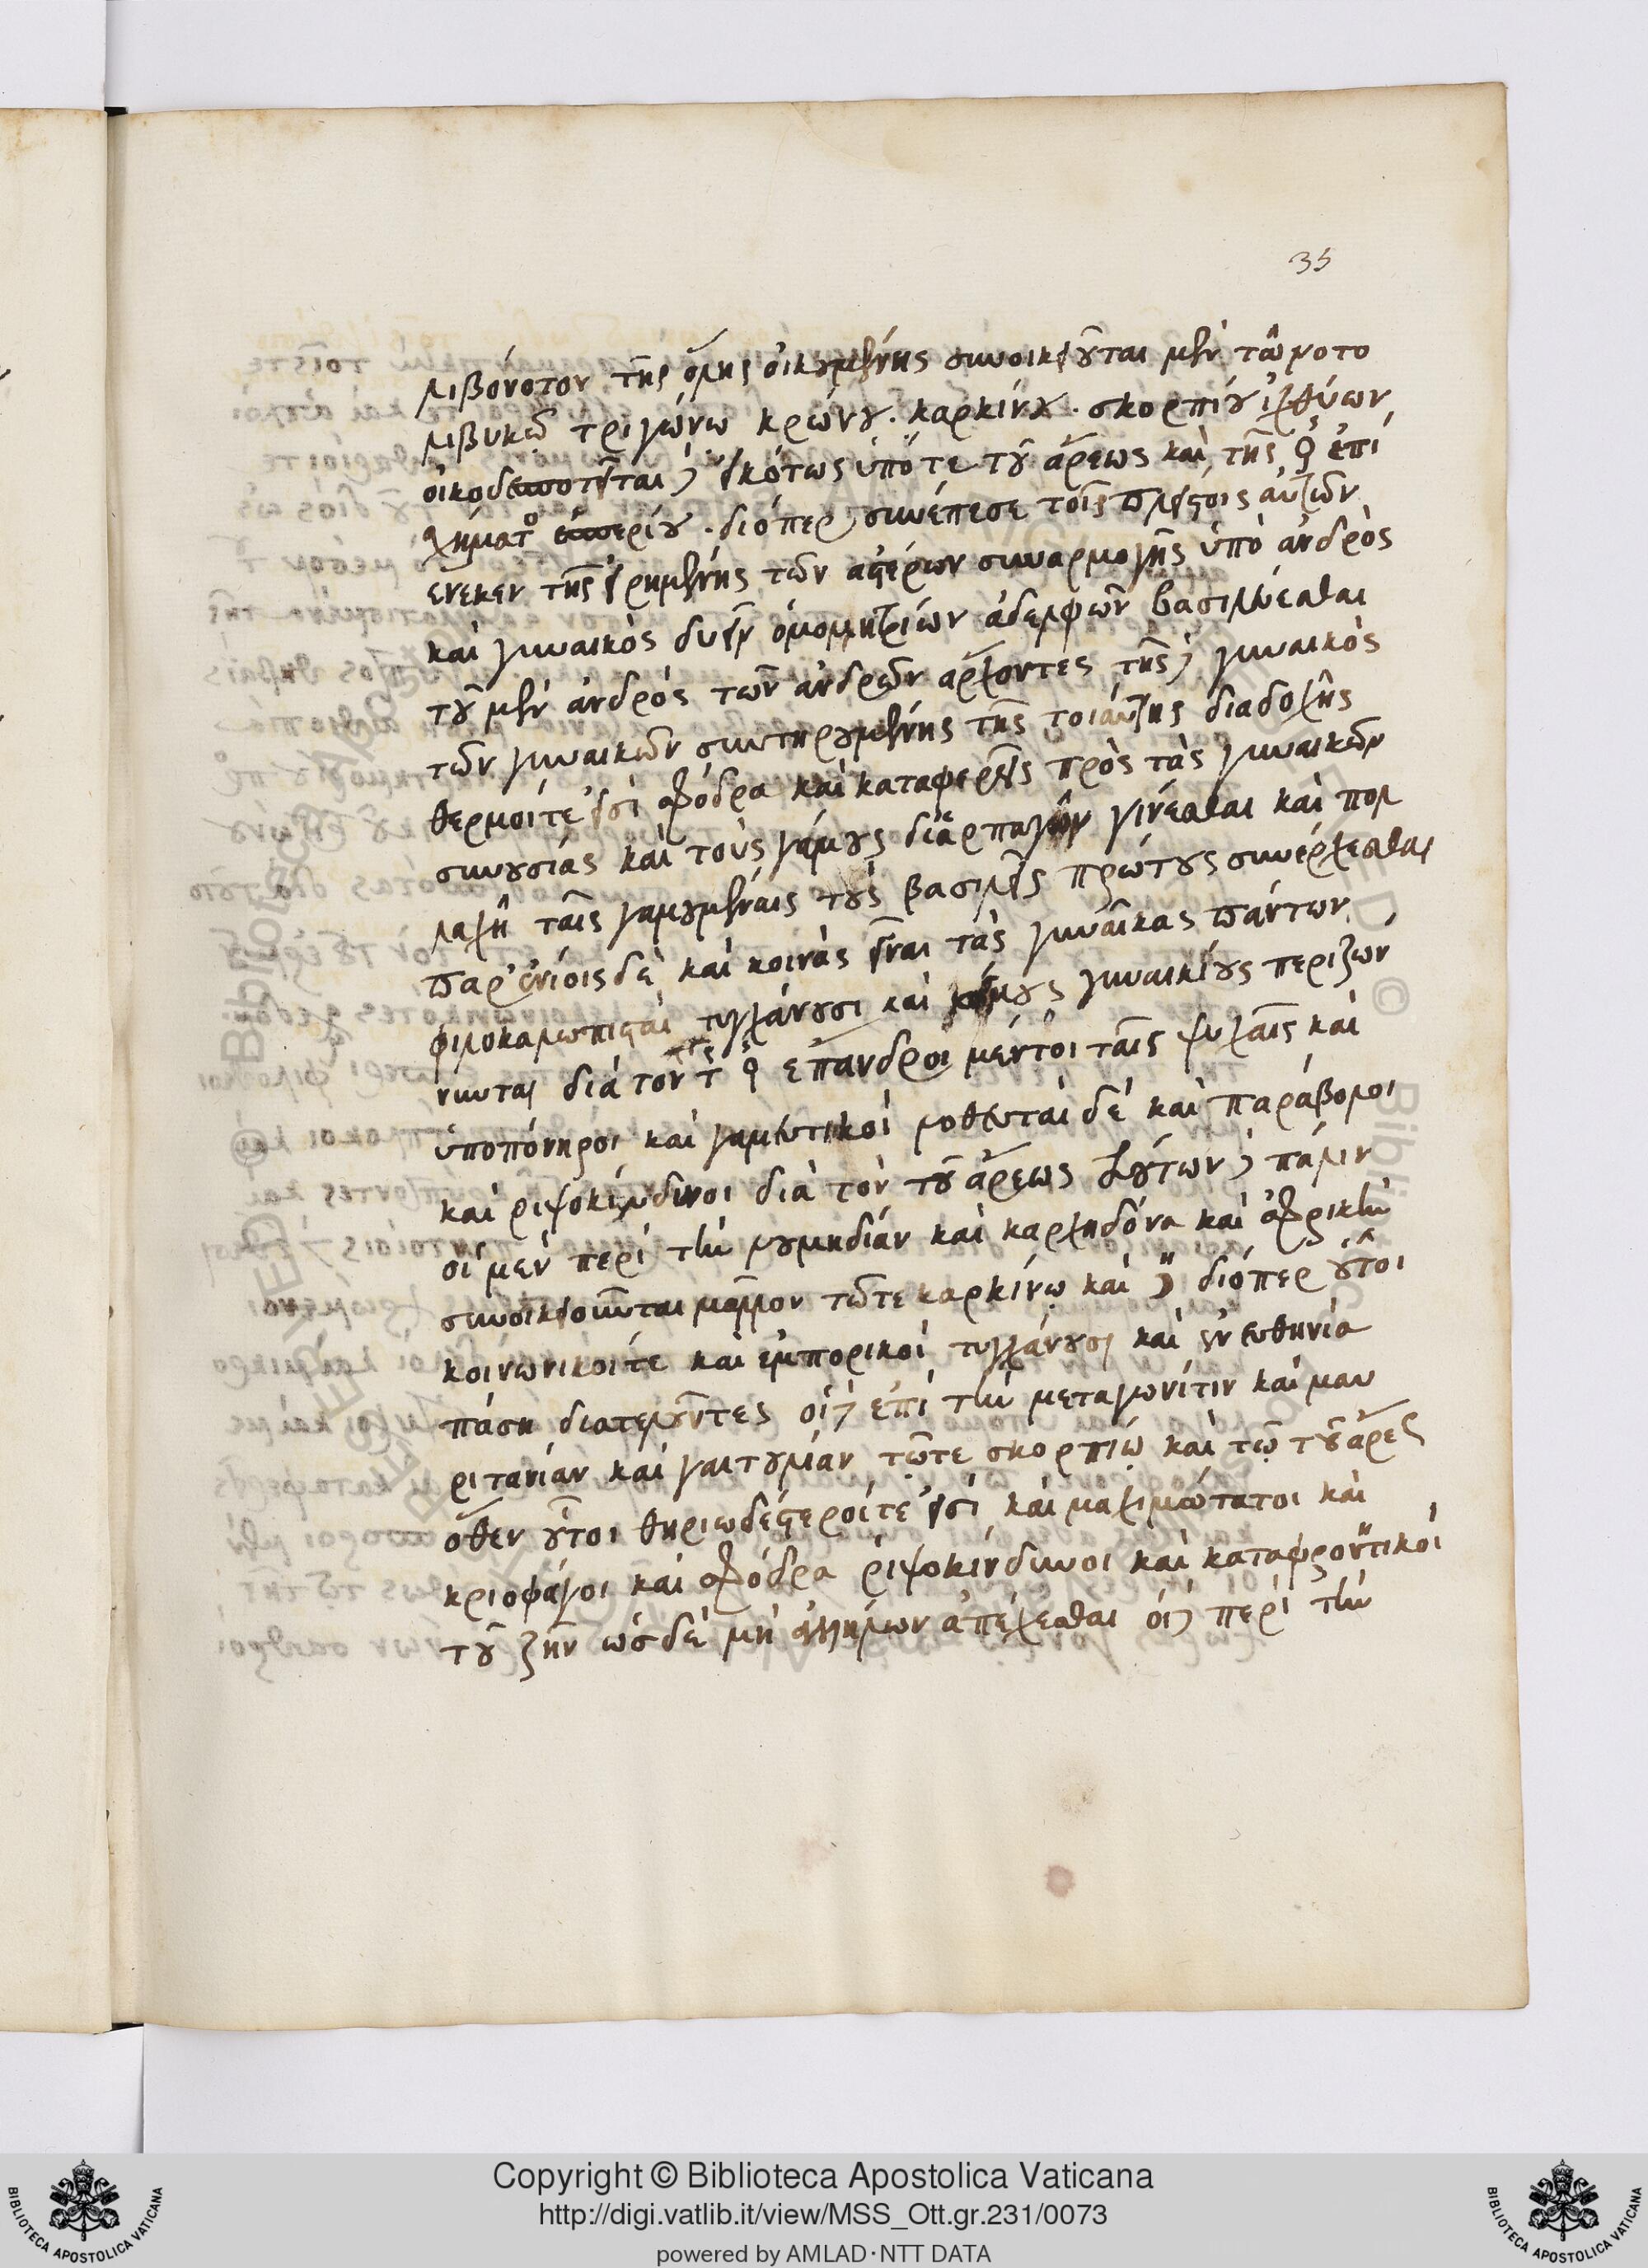 35
λιβόνοτον τῆς ὅλης οἰκουμένης συνοικειοῦται μὲν τῶ νοτο
λιβυκῶ τριγώνω κρώνου. καρκίνου. σκορπίου ἰχθύων
οἰκοδεσποτεῖται δὲ εἰκότως ὑπότε τοῦ ἄρεως καὶ τῆς ♀ ἐπὶ
σχήματος ἑσπερίου. διόπερ συνέπεσε τοῖς πλείστοις αὐτῶν
ενεκεν τῆς εἰρημένης τῶν αστέρων συναρμογῆς ὑπὸ ἀνδρὸς
καὶ γυναικὸς δυεῖν ὁμομητρίων ἀδελφῶν βασιλεύεσθαι
τοῦ μὲν ἀνδρὸς τῶν ἀνδρῶν ἄρχοντες τῆς δὲ γυναικὸς
τῶν γυναικῶν συντηρουμένης τῆς τοιαύτης διαδοχῆς
θερμοίτε εἰσὶ σφόδρα καὶ καταφερεῖς πρὸς τὰς γυναικῶν
συνουσίας καὶ τοὺς γάμους διαρπαγῶν γίνεσθαι καὶ πολ
λαχῆ ταῖς γαμουμέναις τοὺς βασιλεῖς πρώτους συνέρχεσθαι
παρ' ἐνίοις δὲ καὶ κοινὰς εἶναι τὰς γυναῖκας πάντων
φιλοκαλωπισταὶ τυγχάνουσι καὶ κόσμους γυναικίους περιζων
νυνται διὰ τὸν τῆς ♀ ἐπανδροι μέντοι ταῖς ψυχαῖς καὶ
ὑποπόνηροι καὶ γαμευτικοὶ νοθευταὶ δὲ καὶ παράβολοι
καὶ ριψοκίνδυνοι διὰ τὸν τοῦ ἄρεως τούτων δὲ πάλιν
οἱ μὲν περὶ τὴν νουμηδίαν καὶ καρχηδόνα καὶ ἀφρικὴν
συνοικειοῦνται μᾶλλον τῶτε καρκίνω καὶ ☽ διόπερ οὗτοι
κοινωνικοίτε καὶ ἐμπορικοὶ τυγχάνουσι καὶ ἐν εὐθηνία
πάση διατελοῦντες οἱ δὲ ἐπὶ τὴν μεταγωνίτιν καὶ μαυ
ριτανίαν καὶ γαιτουλίαν τῶτε σκορπίω καὶ τῶ τοῦ ἄρεως
ὅθεν οὗτοι θηριωδέστεροίτε εἰσὶ καὶ μαχιμώτατοι καὶ
κριοφάγοι καὶ σφόδρα ῥιψοκίνδυνοι καὶ καταφροντικοὶ
τοῦ ζῆν ὡς δὲ μὴ ἀλλήλων ἀπέχεσθαι οἱ δὲ περὶ τὴν
Copyright © Biblioteca Apostolica Vaticana
http://digi.vatlib.it/view/MSS_Ott.gr.231/0073
powered by AMLAD·NTT DATA
BIBLIOTECA APOSTOLICA VATICANA
BIBLIOTECA APOSTOLICA VATICANA